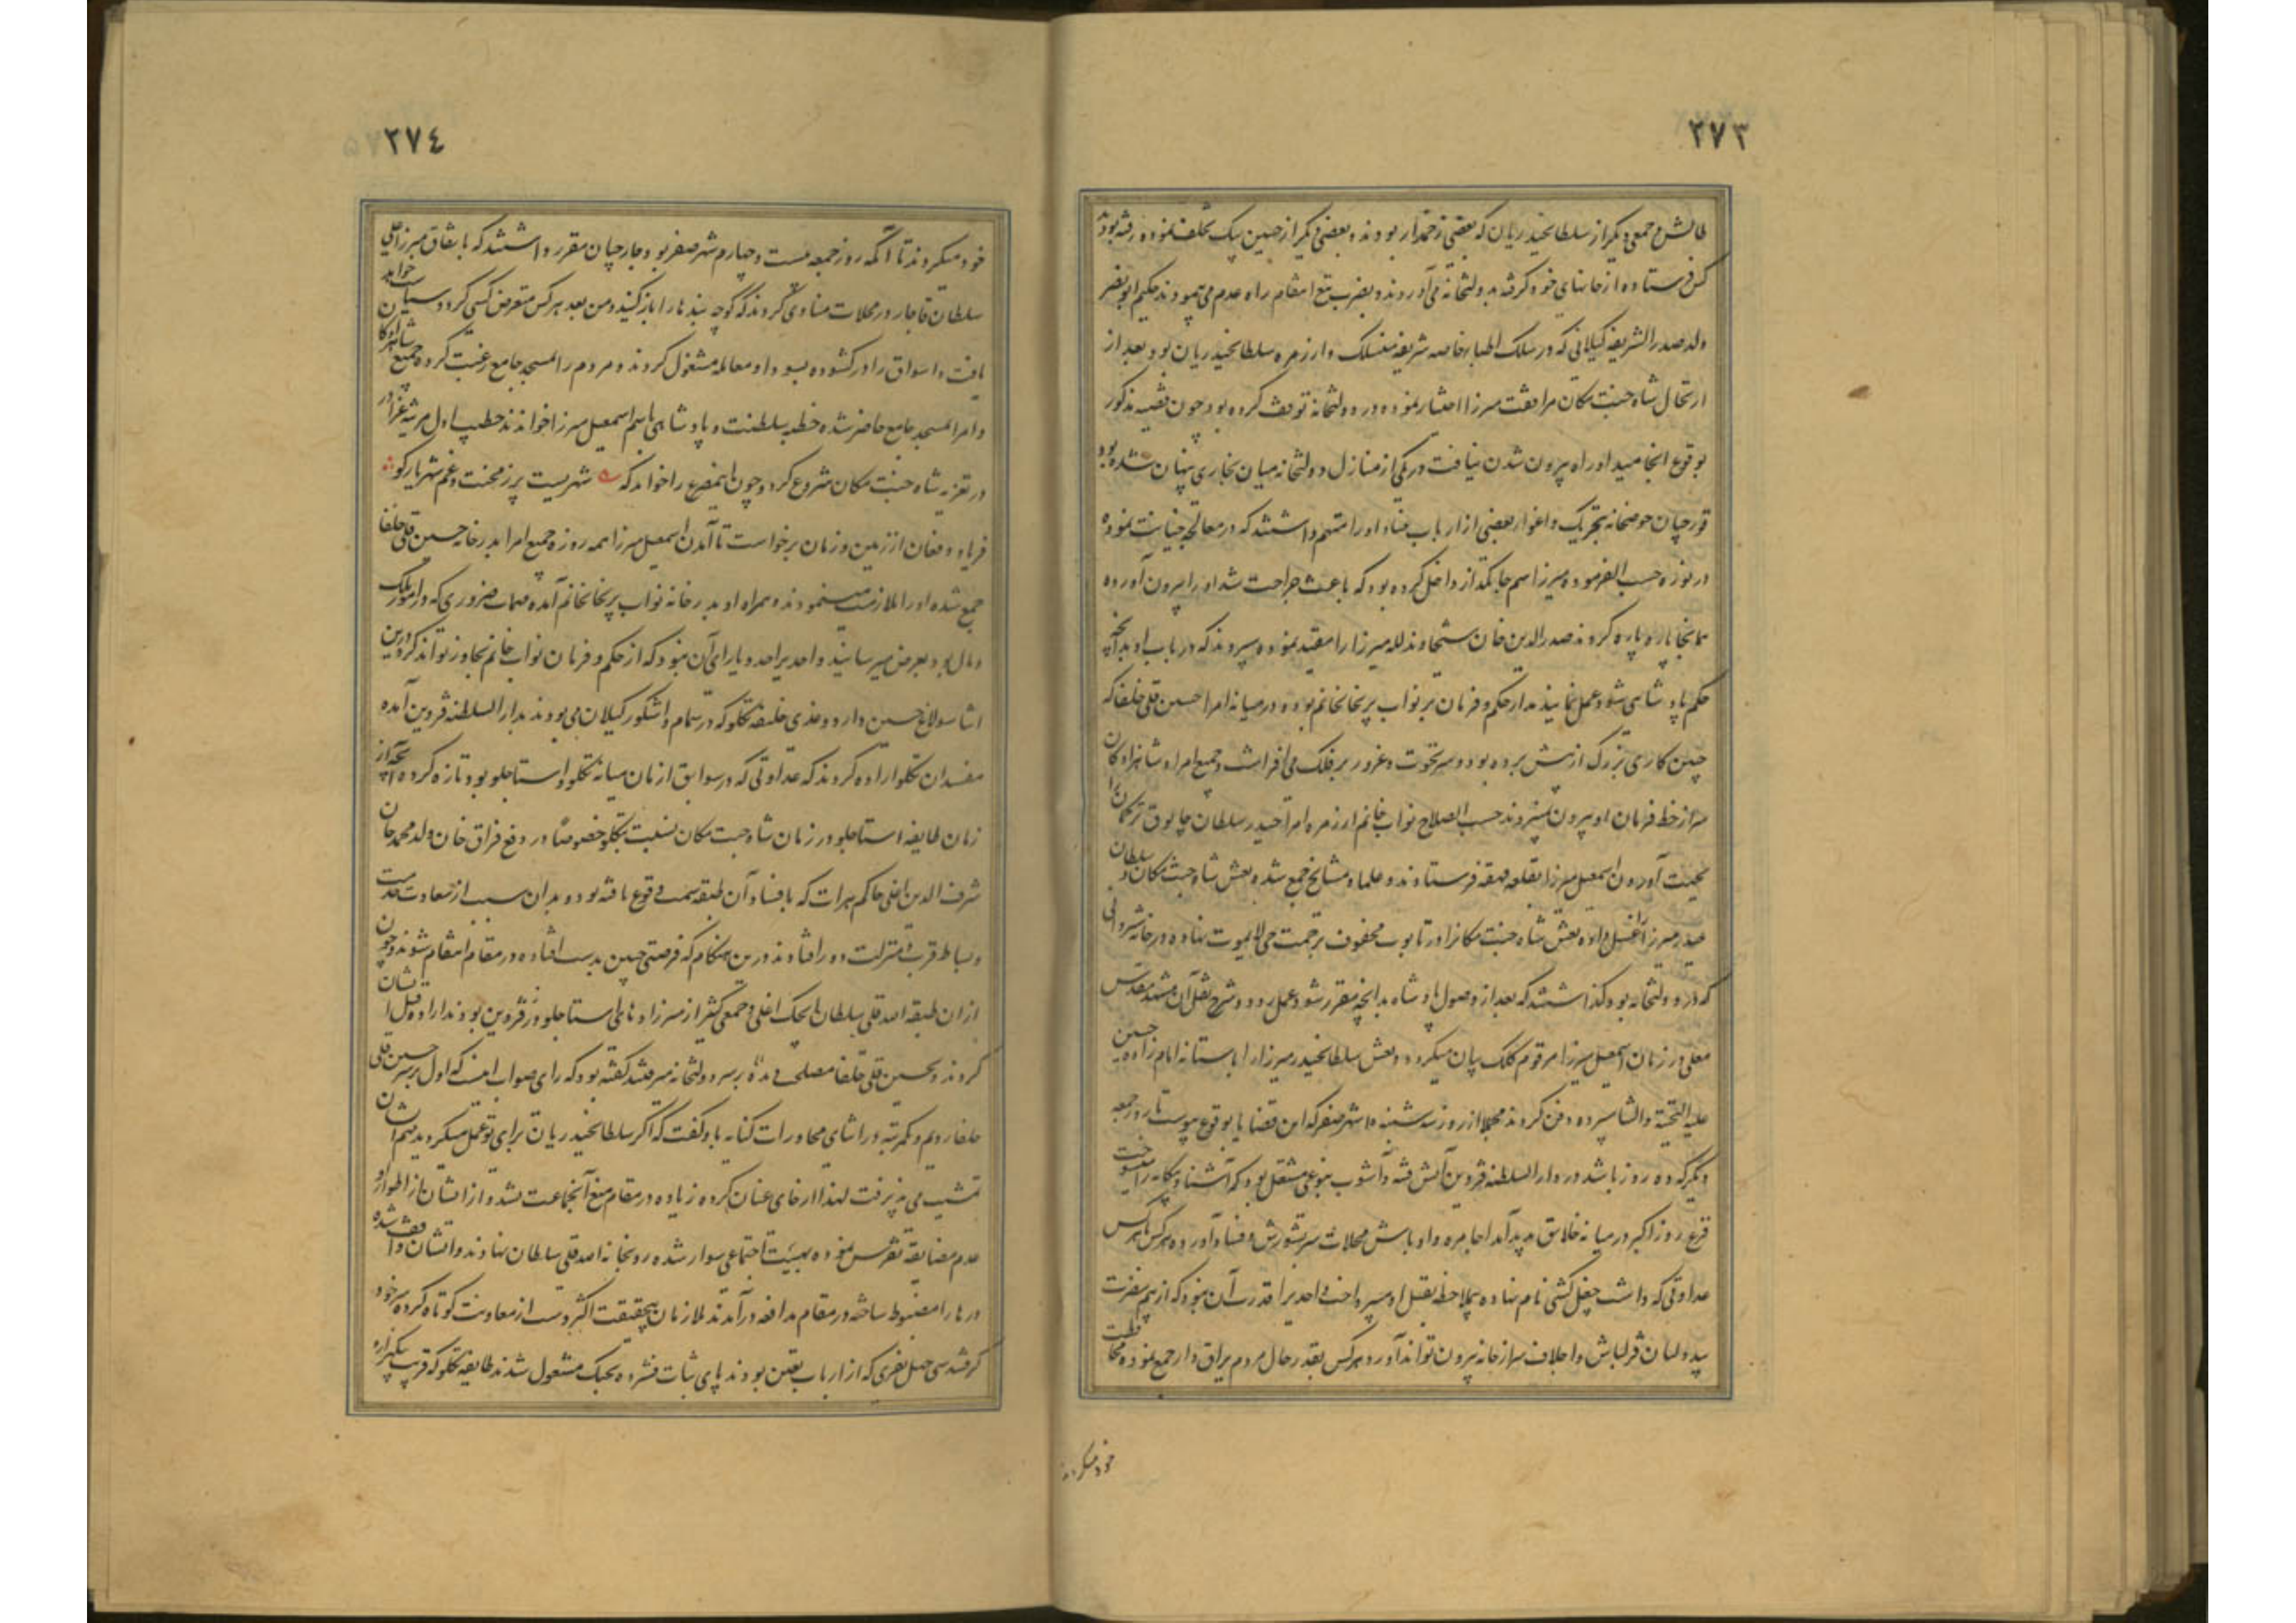 ٢٧٣
طالش و جمعی دیگر از سلطانحیدریان که بعضی زخمدار بودند و بعضی دیگر از حسین بیک تخلف نموده رفته بودند
کس فرستاده از خانهای خود گرفته بدولتخانه می‌آوردند و بضرب تیغ انتقام راه عدم می‌پیمودند حکیم ابو نصر
ولد صدر الشریعه گیلانی که در سلک اطباء خاصه شریفه منسلک و از زمره سلطانحیدریان بود بعد از
ارتحال شاه جنت مکان مرافقت میرزا اختیار نموده در دولتخانه توقف کرده بود چون قضیه مذکور
بوقوع انجامید او راه بیرون شدن نیافت در یکی از منازل دولتخانه میان بخاری پنهان شده بود
قورچیان حوضخانه بتحریک و اغوای بعضی از ارباب فساد او را متهم داشتند که در معالجه خیانت نموده
در نوره حسب الفرموده میرزا سم جانگداز داخل کرده بود که باعث جراحت شد او را بیرون آورده
همانجا پاره پاره کردند صدرالدین خان شیخاوند لله میرزا را مقید نموده سپردند که در باب او بدانچه
حکم پادشاهی شود عمل نمایند مدار حکم و فرمان بر نواب پریخانخانم بوده در میانه امرا حسین قلی خلفا که
چنین کاری بزرگ از پیش برده بود سر نخوت و غرور بر فلک می‌افراشت و جمیع امرا و شاهزادکان
سر از خط فرمان او بیرون نمی‌بردند حسب الصلاح نواب خانم از زمره امرا حیدر سلطان چابوق ترکمان را
بجهت آوردن اسمعیل میرزا بقلعه قهقهه فرستادند و علما و مشایخ جمع شده نعش شاه جنت مکان و سلطان
حیدر میرزا غسل داده نعش شاه جنت مکانرا در تابوت محفوف برحمت حی لایموت نهاده در خانه شروانی
که در دولتخانه بود گذاشتند که بعد از وصول پادشاه بدانچه مقرر شود عمل رود و شرح نقل آن بمشهد مقدس
معلی در زمان اسمعیل میرزا مرقوم کلک بیان میگردد و نعش سلطانحیدر میرزا را باستانه امام زاده حسین
علیه التحیة و الثنا سپرده دفن کردند مجملا از روز سه شنبه ١٥ شهر صفر که این قضایا بوقوع پیوست تا روز جمعه
دیگر که ده روز باشد در دارالسلطنه قزوین آتش فتنه و آشوب بنوعی مشتعل بود که آشنا و بیگانه را
فزع روز اکبر در میانه خلایق پدید آمد اجامره و اوباش محلات سر بشورش و فساد آورده هر کس با هر کس
عداوتی که داشت جغل کشی نام نهاده بیملاحظه بقتل او میپرداخت و احدیرا قدرت آن نبود که از بیم مضرت
بیدولتان قزلباش و اجلاف سر از خانه بیرون تواند آورد و هر کس بقدر حال مردم یراق دار جمع نموده محافظت
خود میکردند
٢٧٤
خود میکردند تا آنکه روز جمعه بیست و چهارم شهر صفر بود جارچیان مقرر داشتند که باتفاق میرزا علی
سلطان قاجار در محلات منادی کردند که کوچه بندها را باز کنند و من بعد هر کس متعرض کسی کردد سیاست خواهد
یافت و اسواق را در گشوده بسودا و معامله مشغول کردند و مردم را بمسجد جامع رغبت کرده جمیع شاهزادکان
و امرا بمسجد جامع حاضر شده خطبه سلطنت و پادشاهی باسم اسمعیل میرزا خواندند خطیب اول مرثیه غرا در
در تعزیه شاه جنت مکان شروع کرد و چون این مصرع را خواند که شهریست پر ز محنت و غم شهریار کو
فریاد و فغان از زمین و زمان برخواست تا آمدن اسمعیل میرزا همه روزه جمیع امرا بدر خانه حسین قلی خلفا
جمع شده او را ملازمت مینمودند و همراه او بدر خانه نواب پریخانخانم آمده مهمات ضروری که در امور ملک
و مال بود بعرض میرسانید و احدیرا حد و یارای آن نبود که از حکم و فرمان نواب خانم تجاوز تواند کرد درین
اثنا سولاغ حسین و ارد وغدی خلیفه تکلو که در تمام و اشکور گیلان می‌بودند بدارالسلطنه قزوین آمده
مفسدان تکلو اراده کردند که عداوتی که در سوابق ازمان میانه تکلو و استاجلو بود تازه کرده آنچه از
زمان طایفه استاجلو در زمان شاه جنت مکان نسبت بتکلو خصوصا در دفع قزاق خان ولد محمد خان
شرف الدین اغلی حاکم هرات که بافساد آن طبقه سمت وقوع یافته بود و بدان سبب از سعادت خدمت
و بساط قرب و منزلت دور افتادند درین هنگام که فرصتی چنین بدست افتاده در مقام انتقام شوند و چون
از ان طبقه امد قلی سلطان ایجک اغلی و جمعی کثیر از میرزاده‌های استاجلو در قزوین بودند اراده قتل ایشان
کردند و بحسین قلی خلفا مصلحت دیده بر سر دولتخانه میرفتند گفته بود که رای صواب اینست که اول بر سر حسین قلی
خلفا رویم و یکمرتبه در اثنای محاورات کنایه باو گفت که اگر سلطانحیدریان برای تو عمل میکردند مهم ایشان
تمشیت می پذیرفت لهذا ارخای عنان کرده زیاده در مقام منع آنجماعت نشد و ازانشان از اطوار او
عدم مضایقه تفرس نموده بهیئت اجتماعی سوار شده رو بخانه امد قلی سلطان نهادند و ایشان واقف شده
درها را مضبوط ساخته در مقام مدافعه درآمدند ملازمان بیحقیقت اکثر دست از معاونت کوتاه کرده سر خود
گرفتند سی چهل نفری که از ارباب یقین بودند پای ثبات فشرده بجنک مشغول شدند طایفه تکلو که قریب بیکهزار